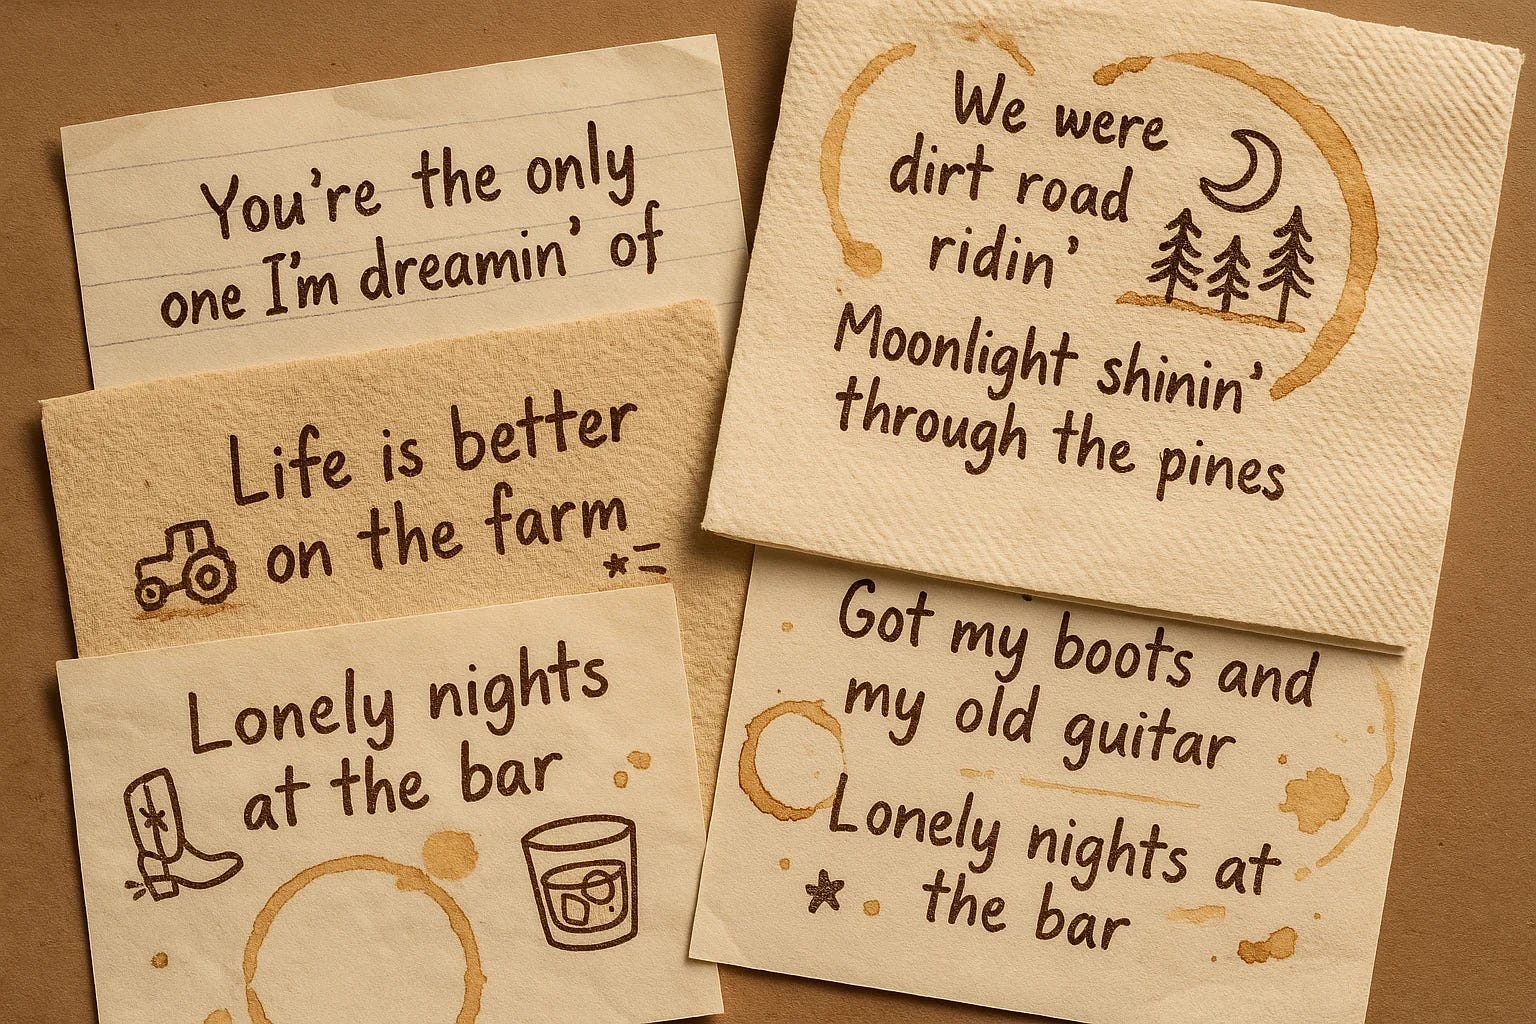 You're the only
one I'm dreamin' of
Life is better
on the farm
Lonely nights
at the bar
We were
dirt road
ridin'
Moonlight shinin'
through the pines
Got my boots and
my old guitar
Lonely nights at
the bar